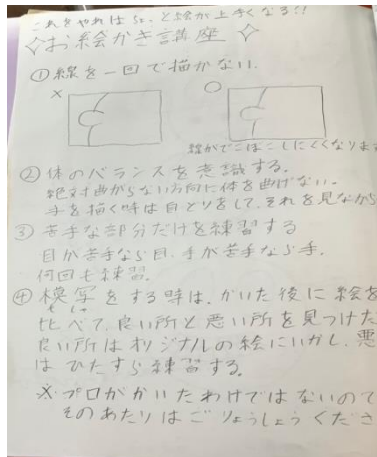 これをやればもっと絵が上手くなる!!
✧お絵かき講座✧
①線を一回で描かない.
× ○
線がでこぼこしにくくなります
②体のバランスを意識する.
絶対曲がらない方向に体を曲げない.
手を描く時は自どりをして、それを見なから
③苦手な部分だけを練習する
目が苦手なら目.手が苦手なら手.
何回も練習.
④模写をする時は、かいた後に絵を
もしゃ
比べて、良い所と悪い所を見つけた
良い所はオリジナルの絵にいかし、悪
はひたすら練習する。
※プロがかいたわけではないので
そのあたりはごりょうしょうくださ